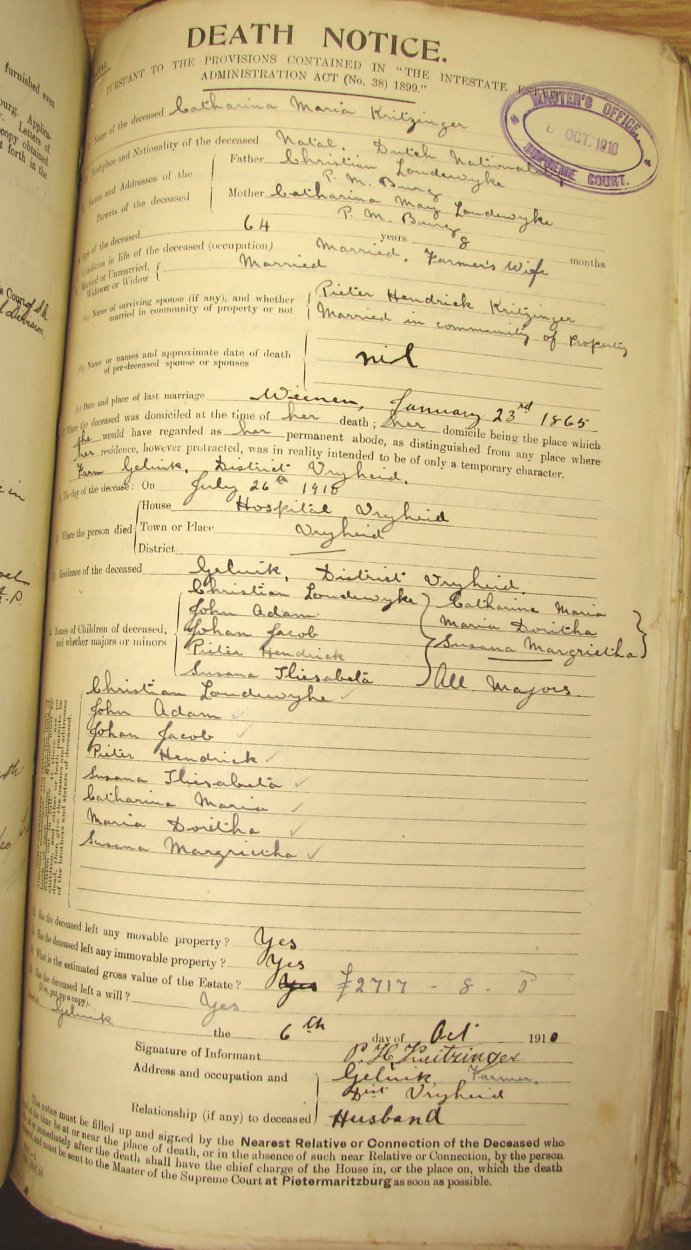 furnished even
burg. Applica-
Letters of
copy obtained
t forth in the
DEATH NOTICE.
PURSUANT TO THE PROVISIONS CONTAINED IN "THE INTESTATE
ADMINISTRATION ACT (No. 38) 1899."
MASTER'S OFFICE,
OCT. 1910
SUPREME COURT.
Name of the deceased Catharina Maria Kritzinger
Birthplace and Nationality of the deceased Natal. Dutch National
Names and Addresses of the Parents of the deceased
Father Christian Loudewyke
P. M. Burg
Mother Catharina May Loudewyke
P. M. Burg
Age of the deceased 64 years 8 months
Condition in life of the deceased (occupation) Married, Farmer's Wife
Married or Unmarried, Widower or Widow Married
(a) Name of surviving spouse (if any), and whether married in community of property or not
Pieter Hendrick Kritzinger
Married in community of Property
(b) Name or names and approximate date of death of pre-deceased spouse or spouses nil
(c) Date and place of last marriage Weenen, January 23rd 1865
Where the deceased was domiciled at the time of her death; her domicile being the place which
she would have regarded as her permanent abode, as distinguished from any place where
her residence, however protracted, was in reality intended to be of only a temporary character.
Farm Geluik, District Vryheid.
The day of the decease: On July 26th 1910
Where the person died
House Hospital Vryheid
Town or Place Vryheid
District
Residence of the deceased Geluik, District Vryheid.
Names of Children of deceased, and whether majors or minors
Christian Loudewyke Catharina Maria
John Adam Maria Doritha
Johan Jacob Susana Margrietha
Pieter Hendrick
Susana Iliesabeta All Majors.
Christian Loudewyke
John Adam
Johan Jacob
Pieter Hendrick
Susana Iliesabeta
Catharina Maria
Maria Doritha
Susana Margrietha
of the brothers and sisters of deceased.
Has the deceased left any movable property? Yes
Has the deceased left any immovable property? Yes
What is the estimated gross value of the Estate? Yes £2717 - 8 - 0
Has the deceased left a will? Yes
(If so, put up a copy).
Dated at Geluik the 6th day of Oct 1910
Signature of Informant P. H. Kritzinger
Address and occupation and Geluik, Farmer.
Dist Vryheid
Relationship (if any) to deceased Husband
This notice must be filled up and signed by the Nearest Relative or Connection of the Deceased who
at the time be at or near the place of death, or in the absence of such near Relative or Connection, by the person
immediately after the death shall have the chief charge of the House in, or the place on, which the death
and must be sent to the Master of the Supreme Court at Pietermaritzburg as soon as possible.